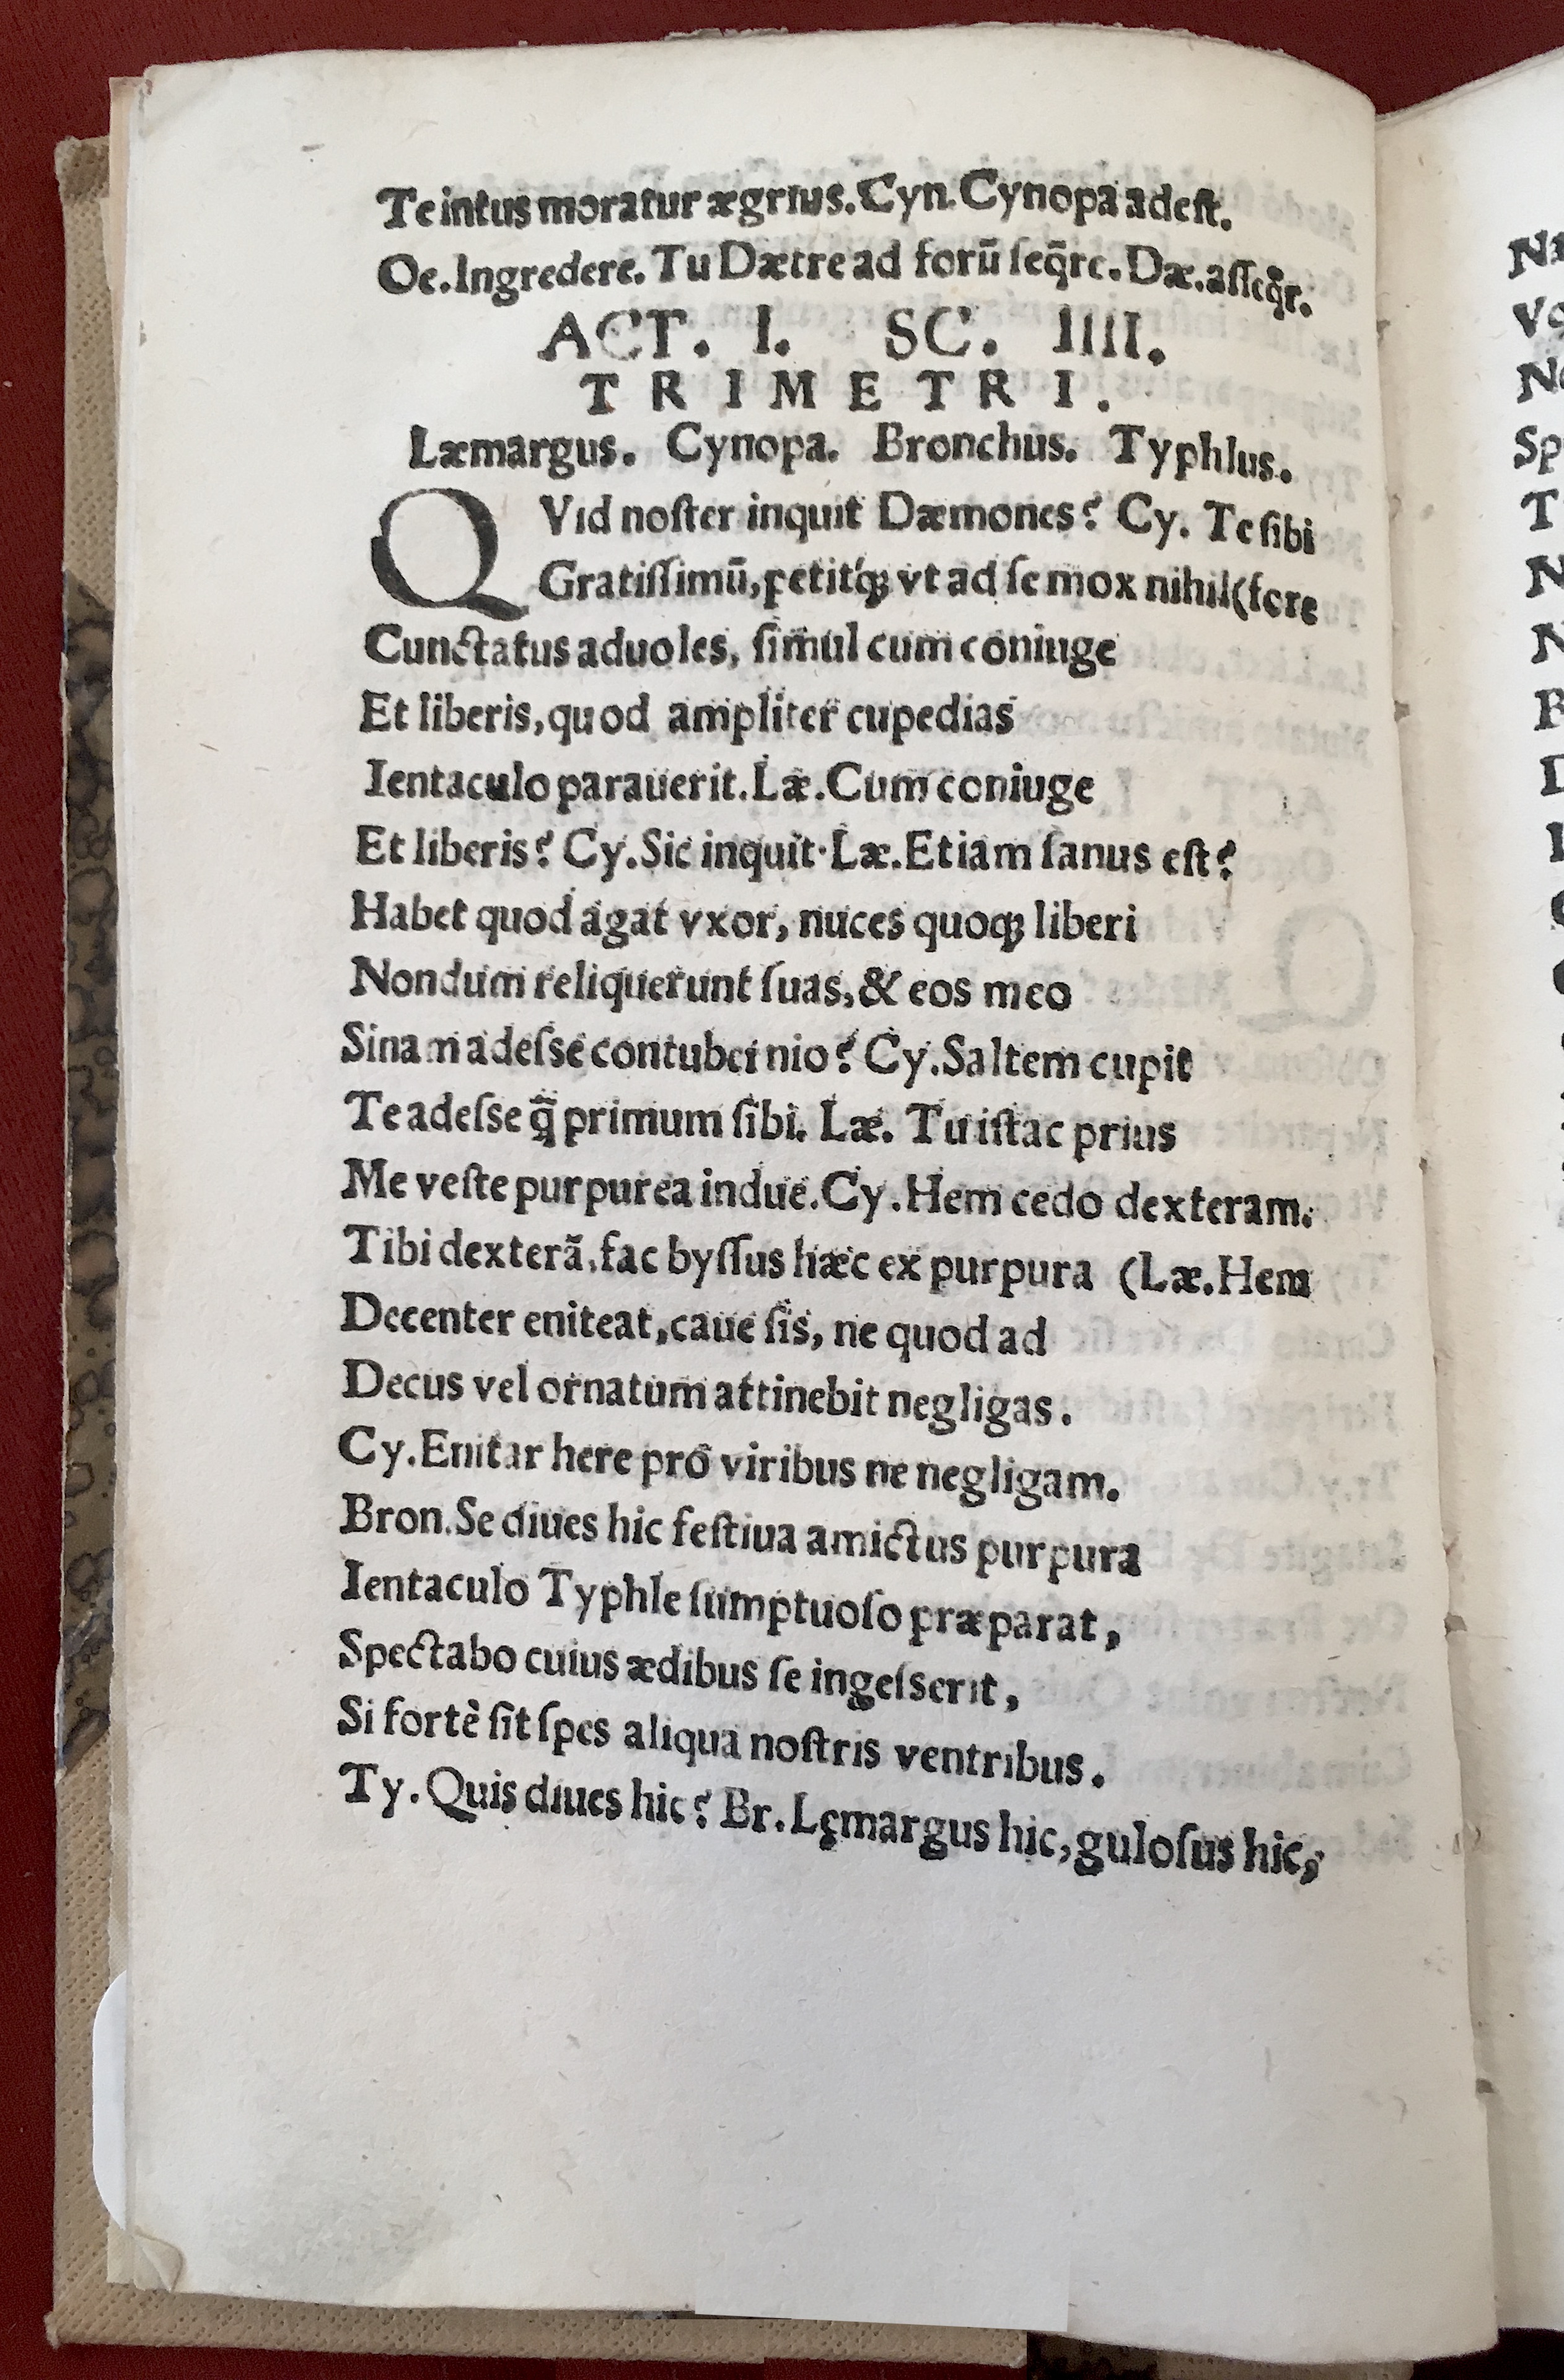 Te intus moratur ægrius. Cyn. Cynopa adeſt.
Oe. Ingredere. Tu Dætre ad forū ſeq̄re. Dæ. aſſeq̊r.
ACT. I. SC. IIII.
TRIMETRI.
Læmargus. Cynopa. Bronchus. Typhlus.
QVid noſter inquit Dæmones? Cy. Te ſibi
Gratiſſimū, petitq́ꝫ vt ad ſe mox nihil (fore
Cunctatus aduoles, ſimul cum coniuge
Et liberis, quod ampliter cupedias
Ientaculo parauerit. Læ. Cum coniuge
Et liberis? Cy. Sic inquit. Læ. Etiam ſanus eſt?
Habet quod agat vxor, nuces quoqꝫ liberi
Nondum reliquerunt ſuas, & eos meo
Sinam adeſse contubernio? Cy. Saltem cupit
Te adeſse q̄ primum ſibi. Læ. Tu iſtac prius
Me veſte purpurea indue. Cy. Hem cedo dexteram.
Tibi dexterā, fac byſſus hæc ex purpura (Læ. Hem
Decenter eniteat, caue ſis, ne quod ad
Decus vel ornatum attinebit negligas.
Cy. Enitar here pro viribus ne negligam.
Bron. Se diues hic feſtiua amictus purpura
Ientaculo Typhle ſumptuoſo præparat,
Spectabo cuius ædibus ſe ingeſserit,
Si fortè ſit ſpes aliqua noſtris ventribus.
Ty. Quis diues hic? Br. Lęmargus hic, guloſus hic,